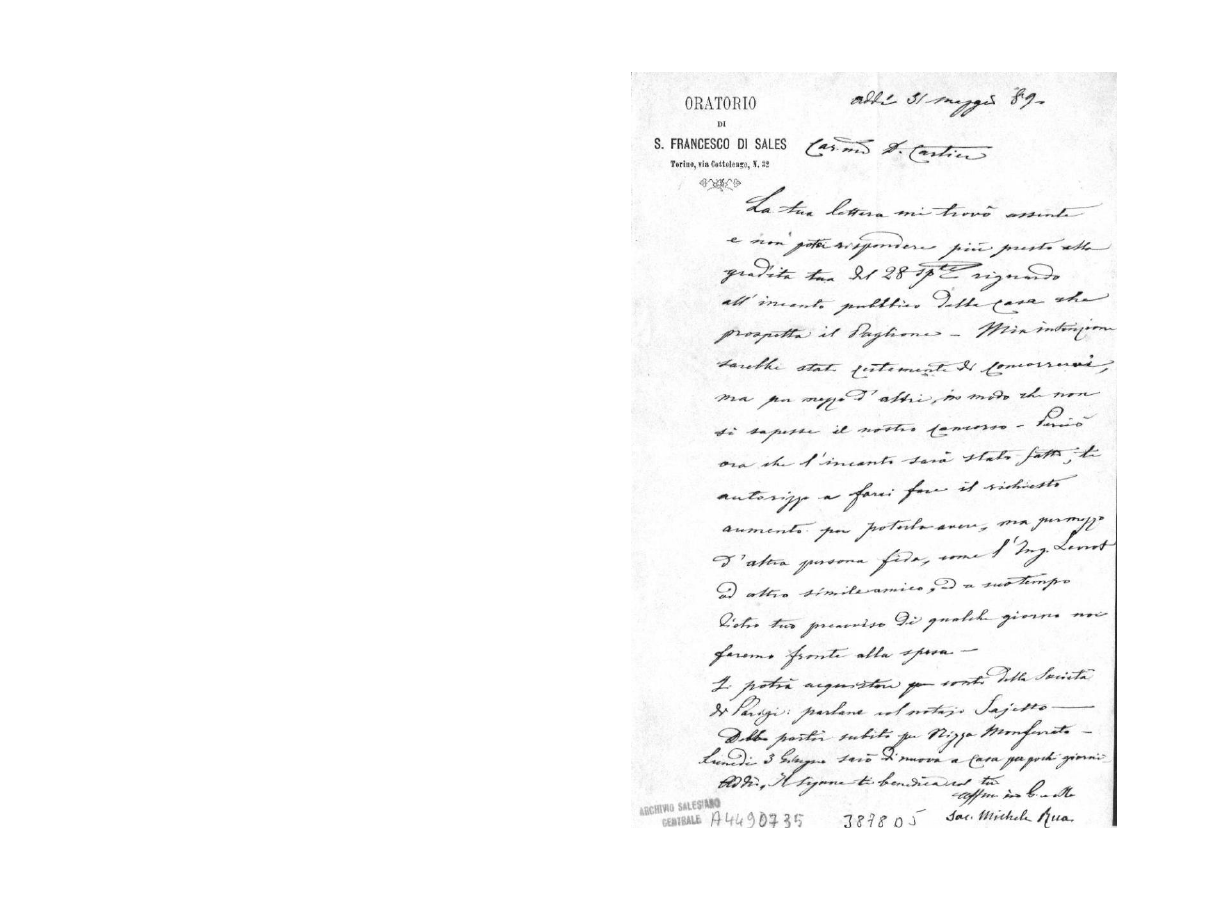 ORATORIO
DI
S. FRANCESCO DI SALES
Torino, via Cottolengo, N. 32
addì 31 maggio 89.
Car.mo D. Cartier
La tua lettera mi trovò assente
e non potei rispondere più presto alla
gradita tua del 28 riguardo
all'incanto pubblico della casa che
prospetta il Paglione — Mia intenzione
sarebbe stata certamente di concorrervi,
ma per mezzo d'altri, in modo che non
si sapesse il nostro concorso — Perciò
ora che l'incanto sarà stato fatto, ti
autorizzo a farci fare il richiesto
aumento per poterla avere, ma per mezzo
d'altra persona fida, come l'Ing. Levrot
od altro simile amico, ed a suo tempo
dietro tuo preavviso di qualche giorno noi
faremo fronte alla spesa —
Si potrà acquistare per conto della Società
di Parigi: parlane col notajo Sajetto —
Debbo partir subito per Nizza Monferrato —
Lunedì 3 Giugno sarò di nuovo a casa per pochi giorni
Addio, Il Signore ti benedica col tuo
aff.mo in G. e M.
Sac. Michele Rua.
ARCHIVIO SALESIANO
CENTRALE
A4490735
3878 D5